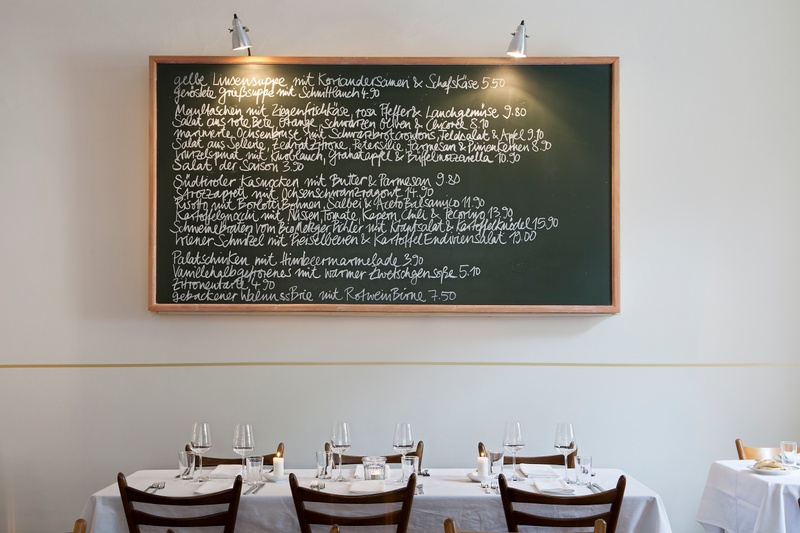 gelbe Linsensuppe mit Koriandersamen & Schafskäse 5.50
geröstete Grießsuppe mit Schnittlauch 4.90
Maultaschen mit Ziegenfrischkäse, rosa Pfeffer & Lauchgemüse 9.80
Salat aus rote Bete, Orange, schwarzen Oliven & Chicorée 8.10
marinierte Ochsenbrust mit Schwarzbrotcroutons, Feldsalat & Apfel 9.10
Salat aus Sellerie, Zedratzitrone, Petersilie, Parmesan & Pinienkernen 8.90
Wurzelspinat mit Knoblauch, Granatapfel & Büffelmozzarella 10.90
Salat der Saison 3.90
Südtiroler Kasnocken mit Butter & Parmesan 9.80
Strozzapreti mit Ochsenschwanzragout 14.90
Risotto mit Borlotti Bohnen, Salbei & Aceto Balsamico 11.90
Kartoffelgnocchi mit Nüssen, Tomate, Kapern, Chili & Pecorino 13.90
Schweinebraten vom Biometzger Pichler mit Krautsalat & Kartoffelknödel 15.90
Wiener Schnitzel mit Preiselbeeren & Kartoffel Endiviensalat 19.00
Palatschinken mit Himbeermarmelade 3.90
Vanillehalbgefrorenes mit warmer Zwetschgensoße 5.10
Zitronentarte 4.90
Gebackener Walnuss Brie mit Rotwein Birne 7.50